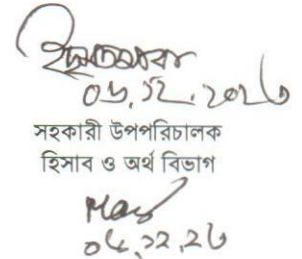 ০৬.১২.২০২৩
সহকারী উপপরিচালক
হিসাব ও অর্থ বিভাগ
০৬.১২.২৩